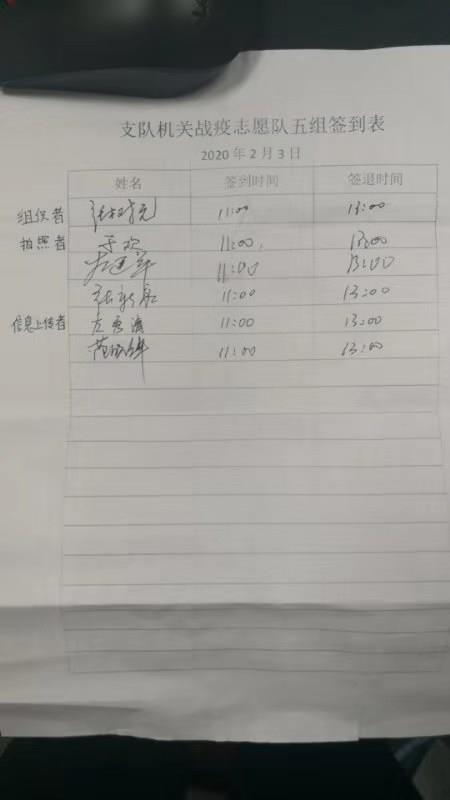 支队机关战疫志愿队五组签到表
2020年2月3日
姓名 签到时间 签退时间
组织者 11:00 13:00
拍照者 于欢 11:00 13:00
11:00 13:00
11:00 13:00
信息上传者 左勇涛 11:00 13:00
11:00 13:00